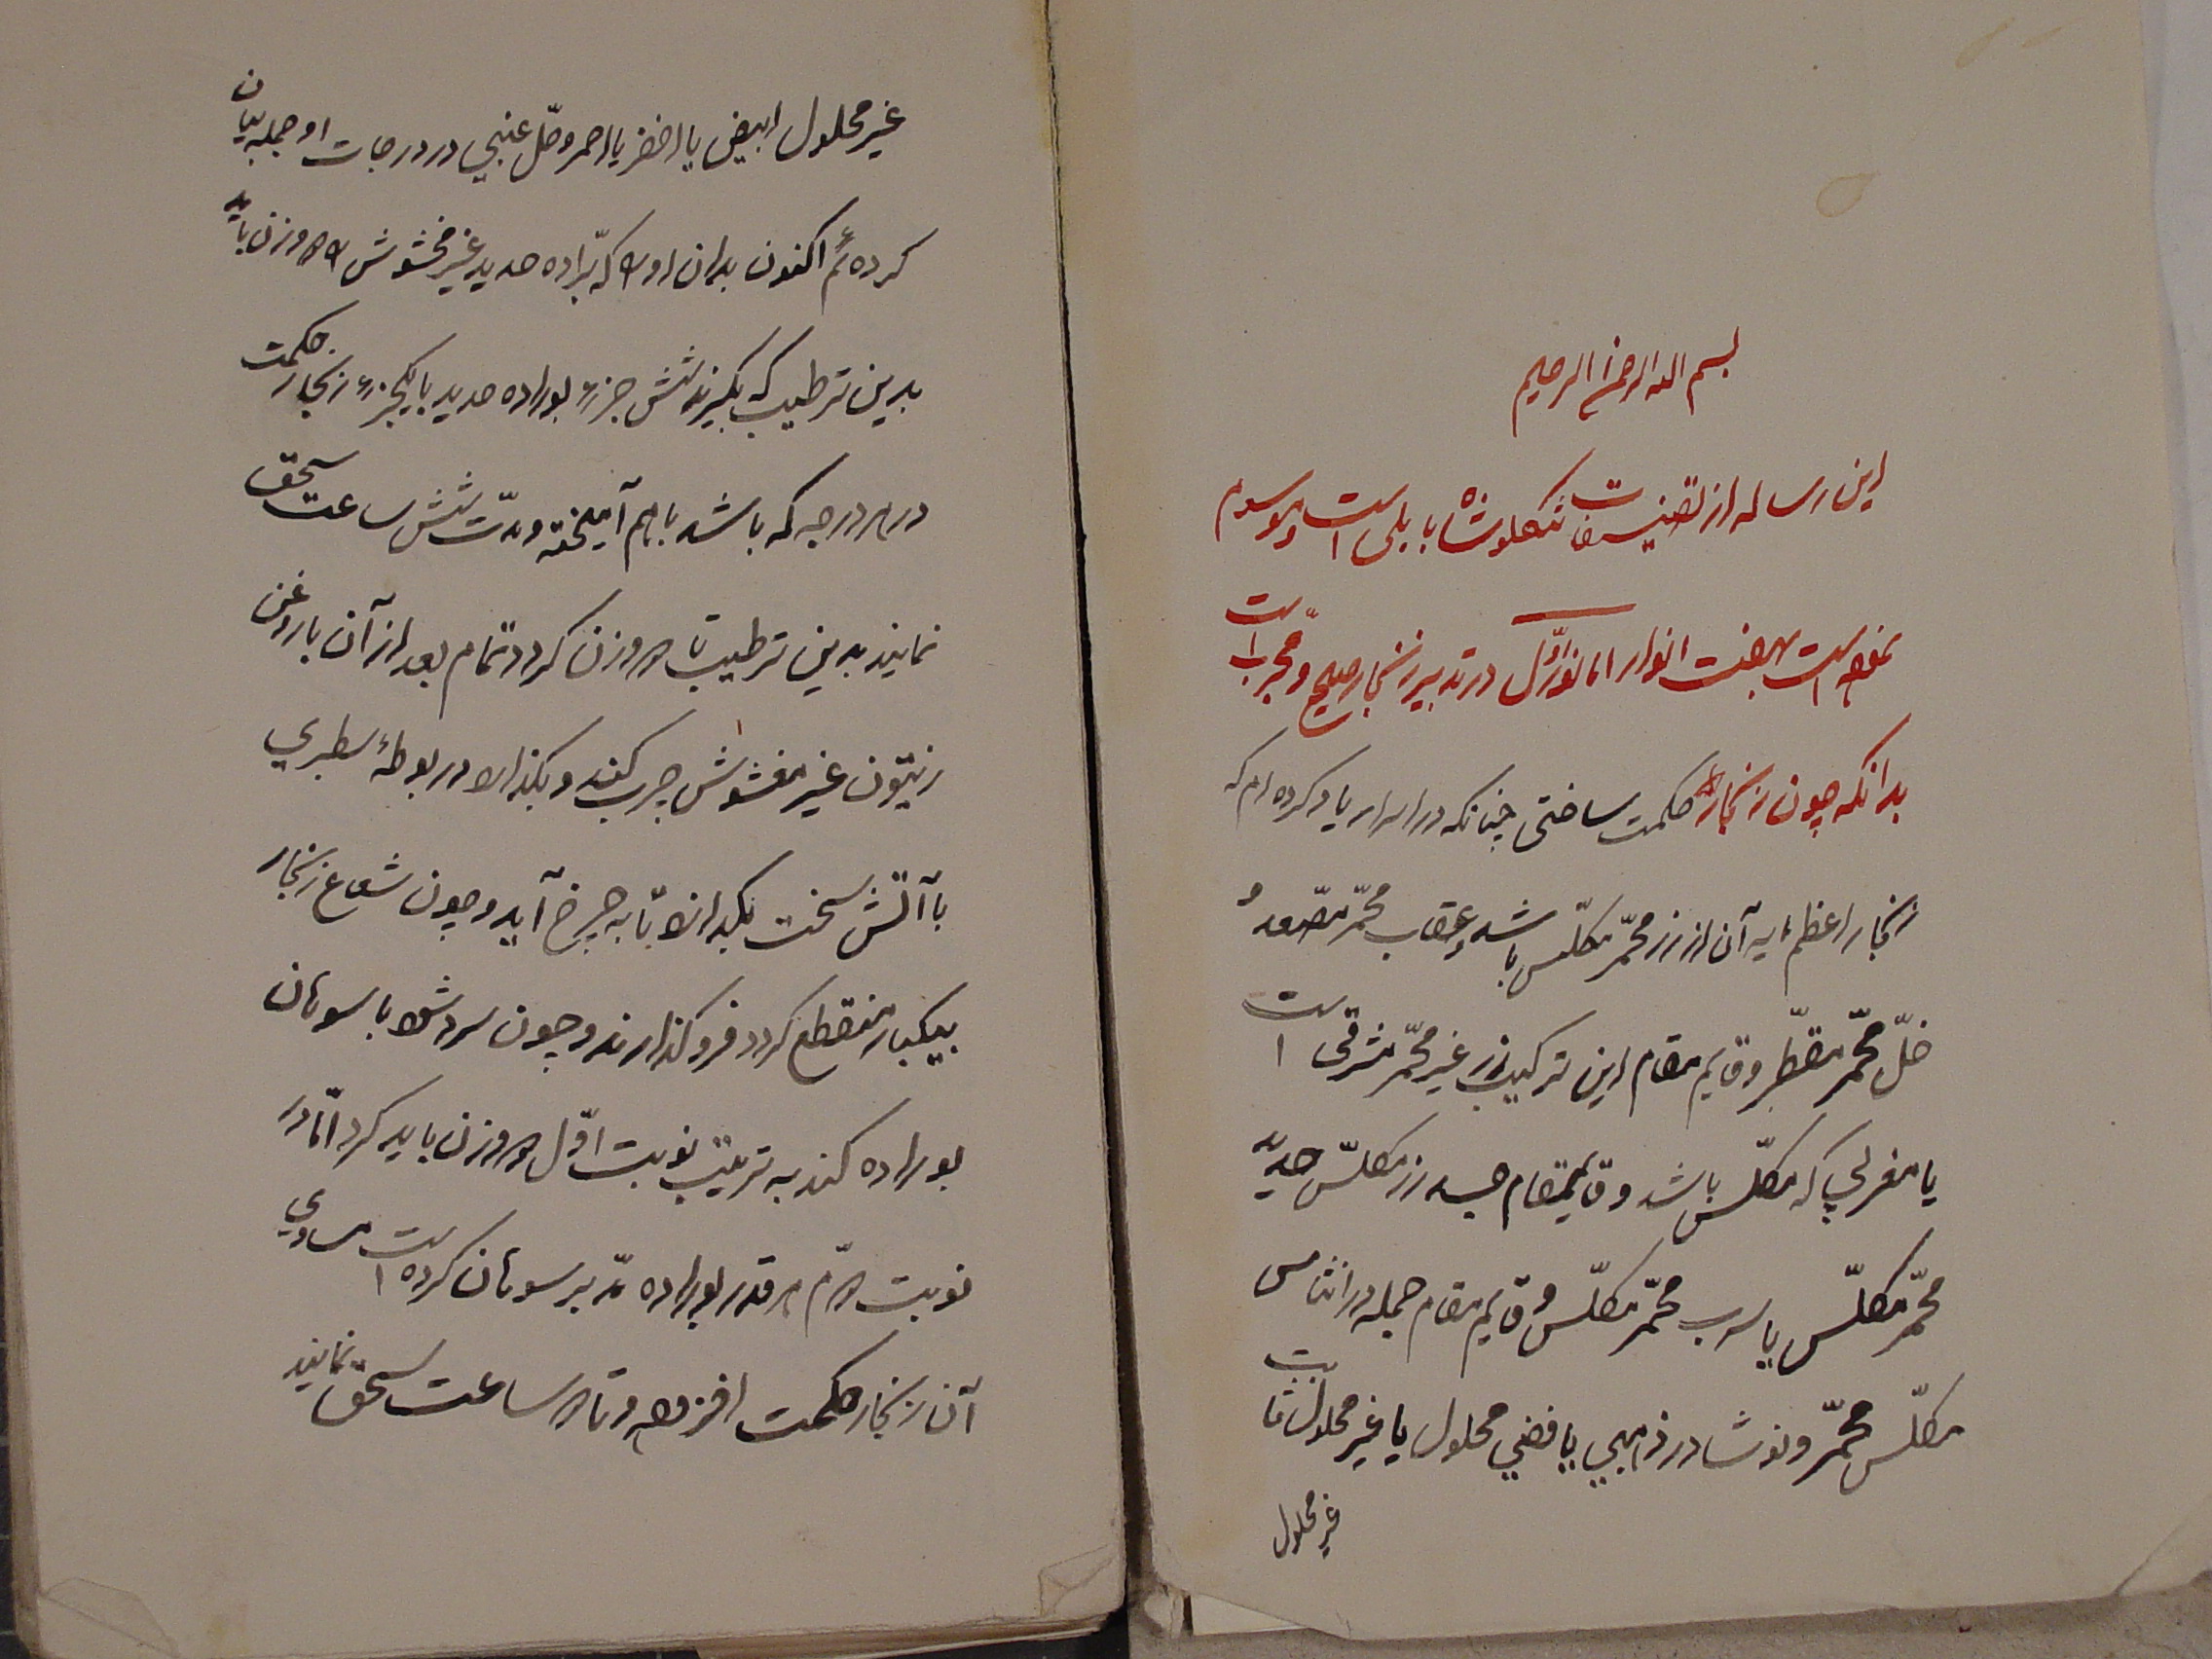 بسم الله الرحمن الرحیم
این رساله از تصنیفات تنکلوشاه بابلی است و موسوم
نموده است بهفت انوار اما نور اوّل در تدبیر زنجار صحیح و مجرّب است
بدانکه چون زنجار حکمت ساختی چنانکه در اسرار یاد کرده‌ام که
زنجار اعظم آن از زر محمّر مکلّس باشد و عقاب محمّر مصّعد و
خلّ محمّر مقطّر و قایم مقام این ترکیب زر غیر محمّر مشرقی است
یا مغربی که مکلّس باشد و قایمقام جسد زر مکلّس حدید
محمّر مکلّس یا سرب محمّر مکلّس و قایم مقام جمله در انثا مس
مکلّس محمّر و نوشادر ذهبی یا فضی محلول یا غیر محلول ثابت
غیر محلول
غیر محلول ابیض یا اخضر یا احمر و خلّ عنبی در درجات او جمله بیان
کرده‌ئم اکنون بدان اولا که برّاده حدید غیر مخشوش را ده وزن باید
بدین ترطیب که بکیرند شش جزء بوراده حدید با یکجزء زنجار حکمت
در هر درجه که باشد باهم آمیخته و مدّت شش ساعت سحق
نمایند بدین ترطیب تا ده وزن کردد تمام بعد از آن با روغن
زیتون غیر مغشوش چرب کنند و بکذارند در بوطهٔ سطبری
با آتش سخت بکدازند تا به چرخ آید و چون شعاع زنجار
بیکبار منقطع کردد فرو کذارند و چون سرد شود با سوهان
بوراده کنند به ترتیب نوبت اوّل ده وزن باید کرد امّا در
نوبت دوّم هر قدر بوراده تدبیر سوهان کرده است مساوی
آن زنجار حکمت افزوده و تا ده ساعت سحق نمایند